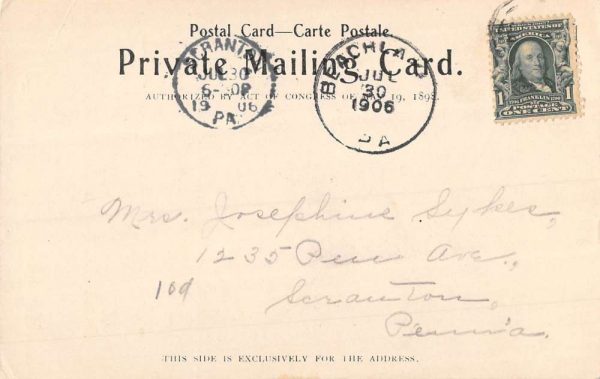 Postal Card—Carte Postale.
Private Mailing Card.
AUTHORIZED BY ACT OF CONGRESS OF MAY 19, 1898.
SCRANTON
JUL 30
6-30P
1906
PA.
BEACHLAKE
JUL
30
1906
PA
UNITED STATES OF
AMERICA
1 FRANKLIN 1
POSTAGE
ONE CENT
Mrs. Josephine Sykes,
1235 Penn Ave.,
109
Scranton,
Penn'a.
THIS SIDE IS EXCLUSIVELY FOR THE ADDRESS.